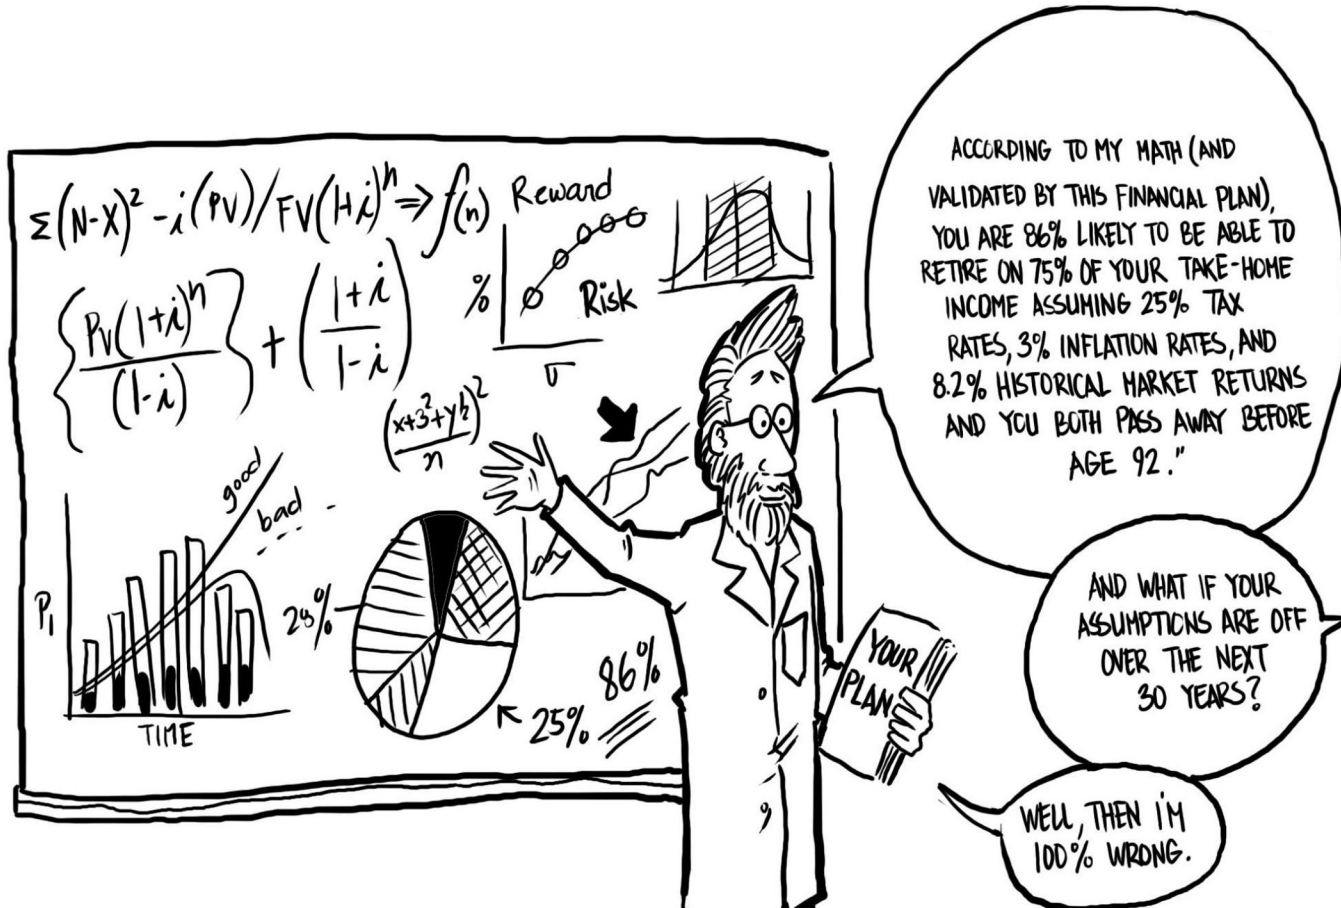 Σ(N-X)² - i(PV)/FV(1+i)ⁿ ⇒ f(n)
{PV(1+i)ⁿ/(1-i)} + (1+i/1-i)
Reward
%
Risk
σ
(x+3²+y½/n)²
good
bad
P₁
TIME
28%
25%
86%
YOUR
PLAN
ACCORDING TO MY MATH (AND
VALIDATED BY THIS FINANCIAL PLAN),
YOU ARE 86% LIKELY TO BE ABLE TO
RETIRE ON 75% OF YOUR TAKE-HOME
INCOME ASSUMING 25% TAX
RATES, 3% INFLATION RATES, AND
8.2% HISTORICAL MARKET RETURNS
AND YOU BOTH PASS AWAY BEFORE
AGE 92."
AND WHAT IF YOUR
ASSUMPTIONS ARE OFF
OVER THE NEXT
30 YEARS?
WELL, THEN I'M
100% WRONG.